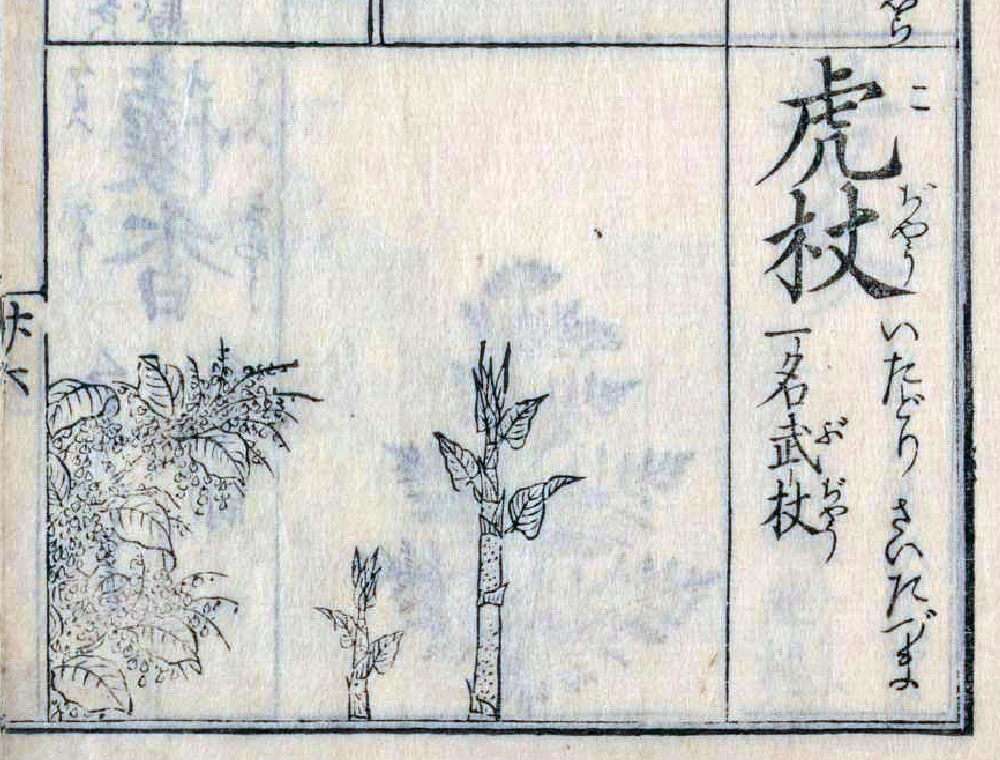 虎杖
こぢやう
いたどり さいたづま
一名武杖
ぶぢやう